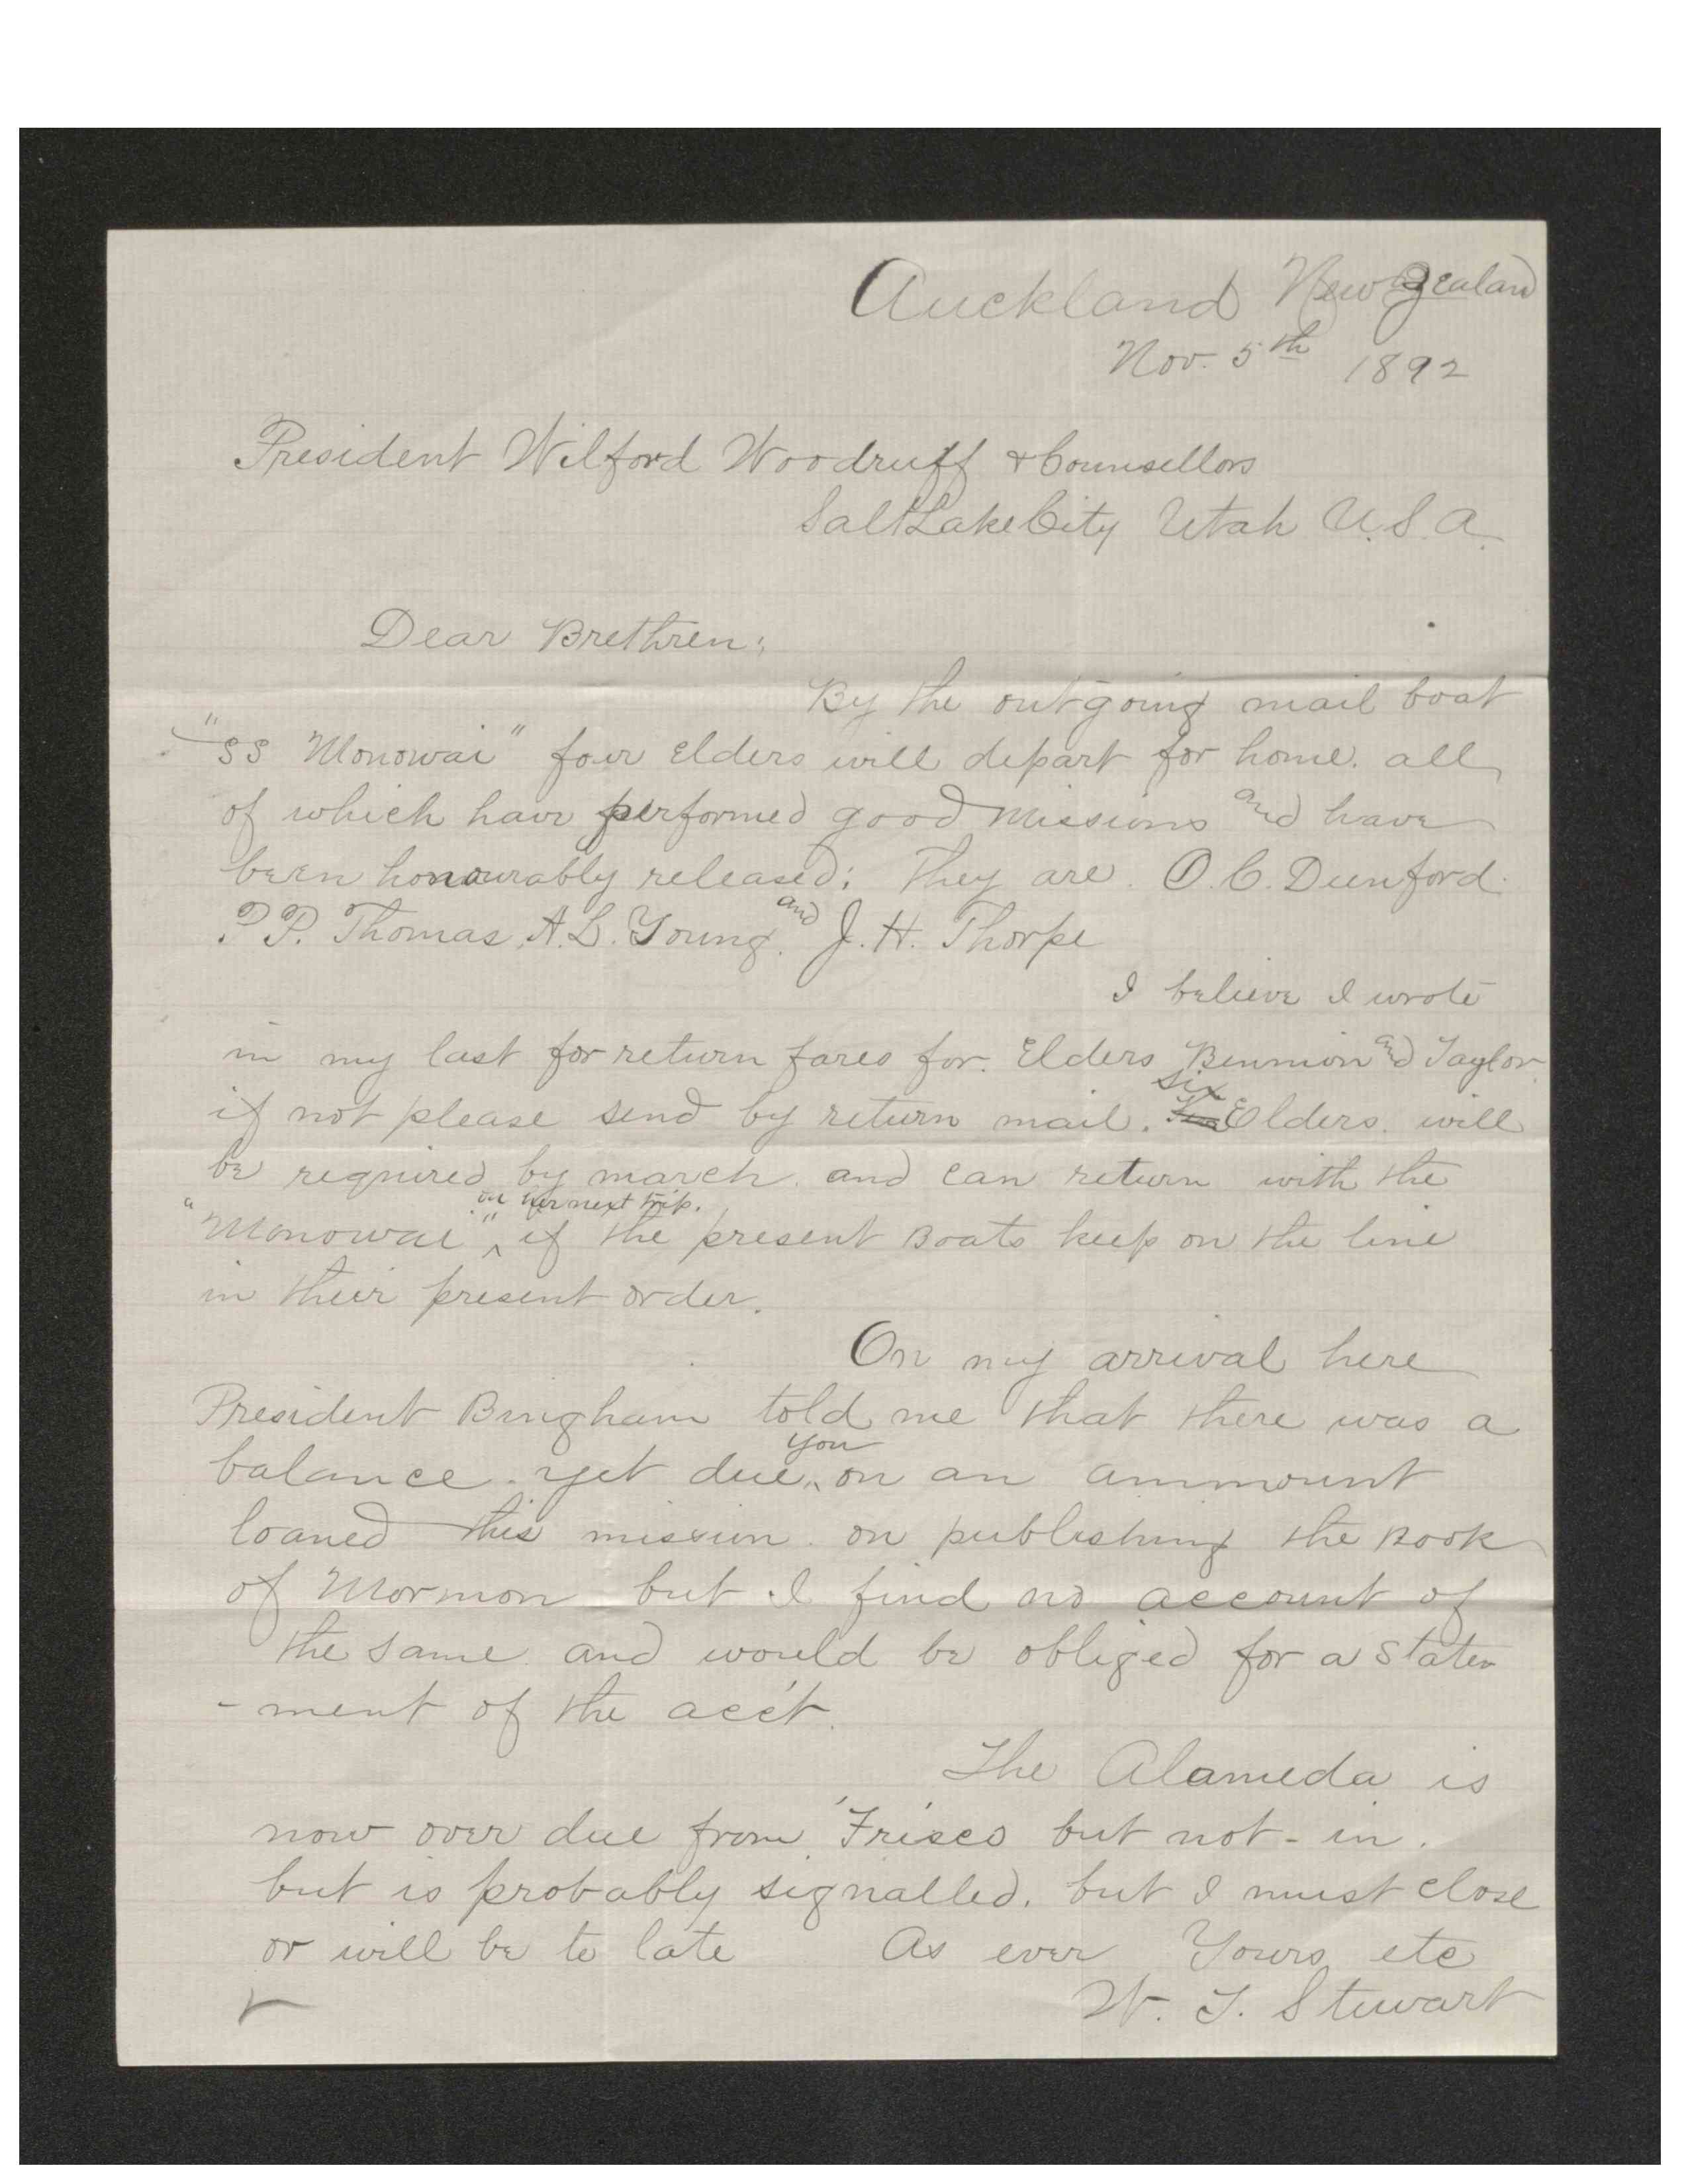 Auckland New Zealand
Nov. 5th 1892
President Wilford Woodruff & Counsellors
Salt Lake City Utah U.S.A.
Dear Brethren;
By the outgoing mail boat
"SS Monowai" four Elders will depart for home. all
of which have performed good missions and have
been honourably released: They are. O. C. Dunford.
P. P. Thomas, A. L. Young. and J. H. Thorpe
I believe I wrote
in my last for return fares for. Elders Bennion and Taylor.
if not please send by return mail. six Elders. will
be required by march. and can return with the
"Monowai" on her next trip. if the present Boats keep on the line
in their present order.
On my arrival here
President Bingham told me that there was a
balance. yet due you on an ammount
loaned this mission. on publishing the Book
of Mormon but I find no account of
the same. and would be obliged for a state
-ment of the acc't.
The Alameda is
now over due from 'Frisco but not - in.
but is probably signalled. but I must close
or will be to late As ever Yours etc
W. T. Stewart